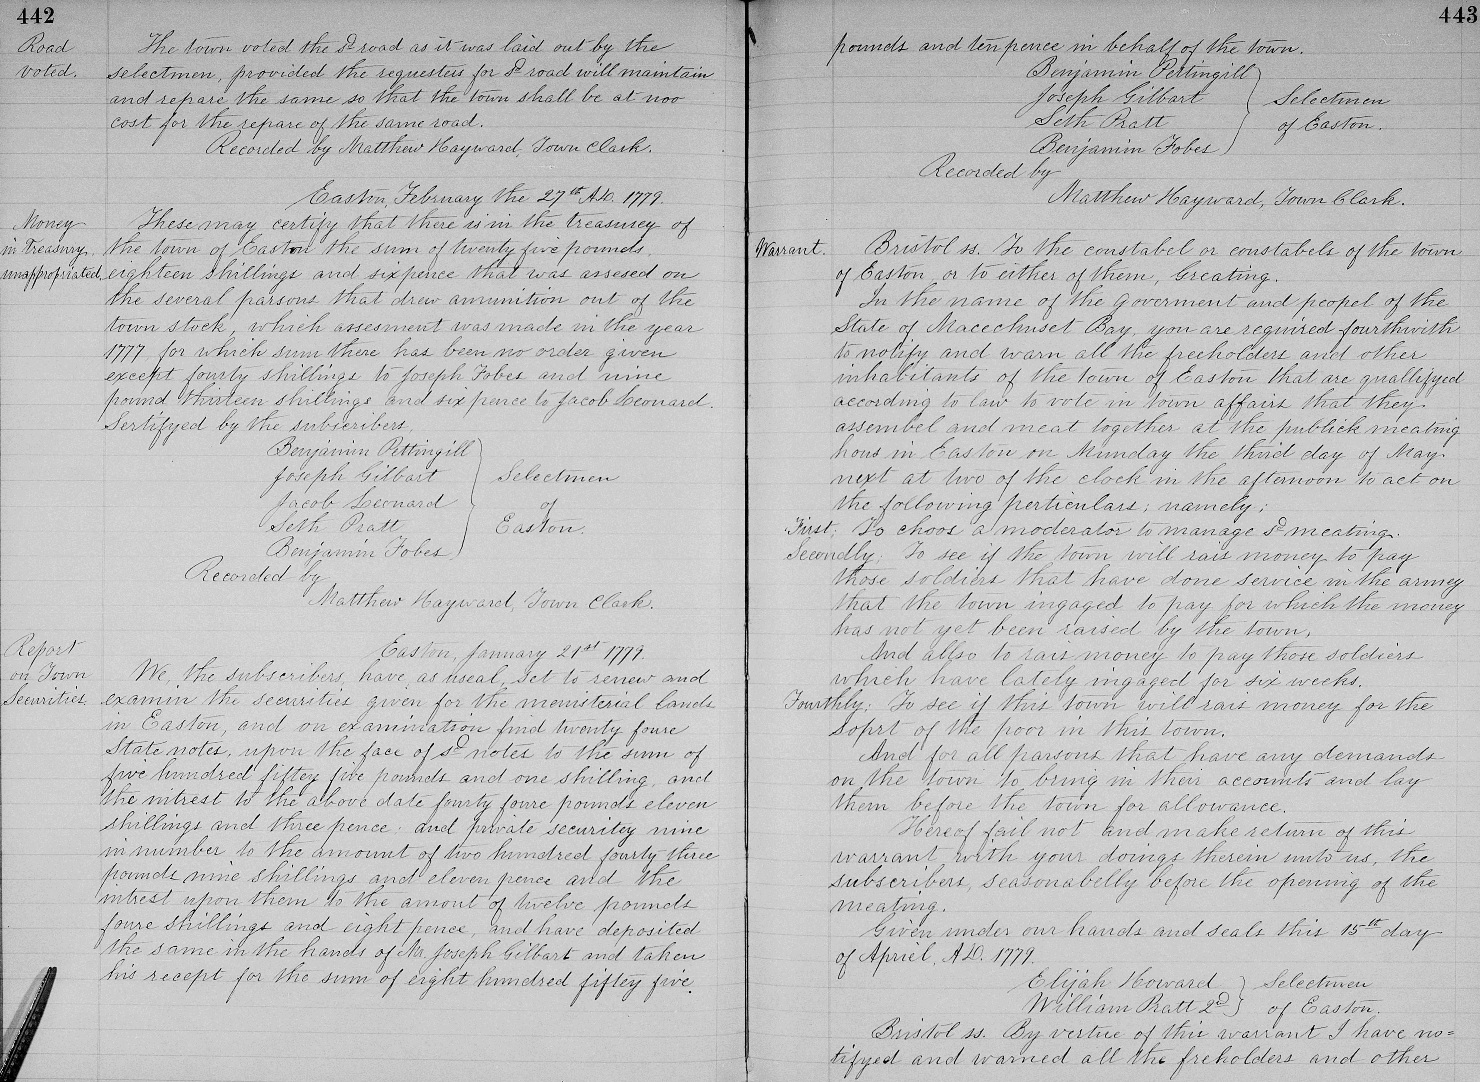 442
Road
voted.
The town voted the sd road as it was laid out by the
selectmen, provided the requesters for sd road will maintain
and repare the same so that the town shall be at noo
cost for the repare of the same road.
Recorded by Matthew Hayward, Town Clark.
Easton, February the 27th A.D. 1779.
Money
in treasury,
unappropriated.
These may certify that there is in the treasurey of
the town of Easton the sum of twenty five pounds,
eighteen shillings and sixpence that was assesed on
the several parsons that drew ammunition out of the
town stock, which assesment was made in the year
1777, for which sum there has been no order given
except fourty shillings to Joseph Fobes and nine
pound thirteen shillings and six pence to Jacob Leonard.
Sertifyed by the subscribers,
Benjamin Pettingill
Joseph Gilbart
Jacob Leonard
Seth Pratt
Benjamin Fobes
Selectmen
of
Easton.
Recorded by
Matthew Hayward, Town Clark.
Report
on Town
Securities.
Easton, January 21st 1779.
We, the subscribers, have, as useal, set to renew and
examin the securities given for the menisterial lands
in Easton, and on examination find twenty foure
State notes, upon the face of sd notes to the sum of
five hundred fiftey five pounds and one shilling, and
the intrest to the above date fourty foure pounds eleven
shillings and three pence: and private securitey nine
in number to the amount of two hundred fourty three
pounds nine shillings and eleven pence and the
intrest upon them to the amount of twelve pounds
foure shillings and eight pence, and have deposited
the same in the hands of Mr. Joseph Gilbart and taken
his recept for the sum of eight hundred fiftey five
443
pounds and ten pence in behalf of the town.
Benjamin Pettingill
Joseph Gilbart
Seth Pratt
Benjamin Fobes
Selectmen
of Easton.
Recorded by
Matthew Hayward, Town Clark.
Warrant.
Bristol ss. To the constabel or constabels of the town
of Easton, or to either of them, Greating.
In the name of the goverment and peopel of the
State of Macechuset Bay, you are required fourthwith
to notify and warn all the freeholders and other
inhabitants of the town of Easton that are quallifyed
according to law to vote in town affairs that they
assembel and meat together at the publick meating
hous in Easton on Munday the third day of May
next at two of the clock in the afternoon to act on
the following perticulars; namely;
First; To choos a moderator to manage sd meating.
Secondly; To see if the town will rais money to pay
those soldiers that have done service in the armey
that the town ingaged to pay for which the money
has not yet been raised by the town,
And allso to rais money to pay those soldiers
which have lately ingaged for six weeks.
Fourthly; To see if this town will rais money for the
soprt of the poor in this town.
And for all parsons that have any demands
on the town to bring in their accounts and lay
them before the town for allowance.
Hereof fail not and make return of this
warrant with your doings therein unto us, the
subscribers, seasonabelly before the opening of the
meating.
Given under our hands and seals this 15th day
of Apriel, A.D. 1779.
Elijah Howard
William Pratt 2d
Selectmen
of Easton.
Bristol ss. By vertue of this warrant I have no=
tifyed and warned all the freholders and other